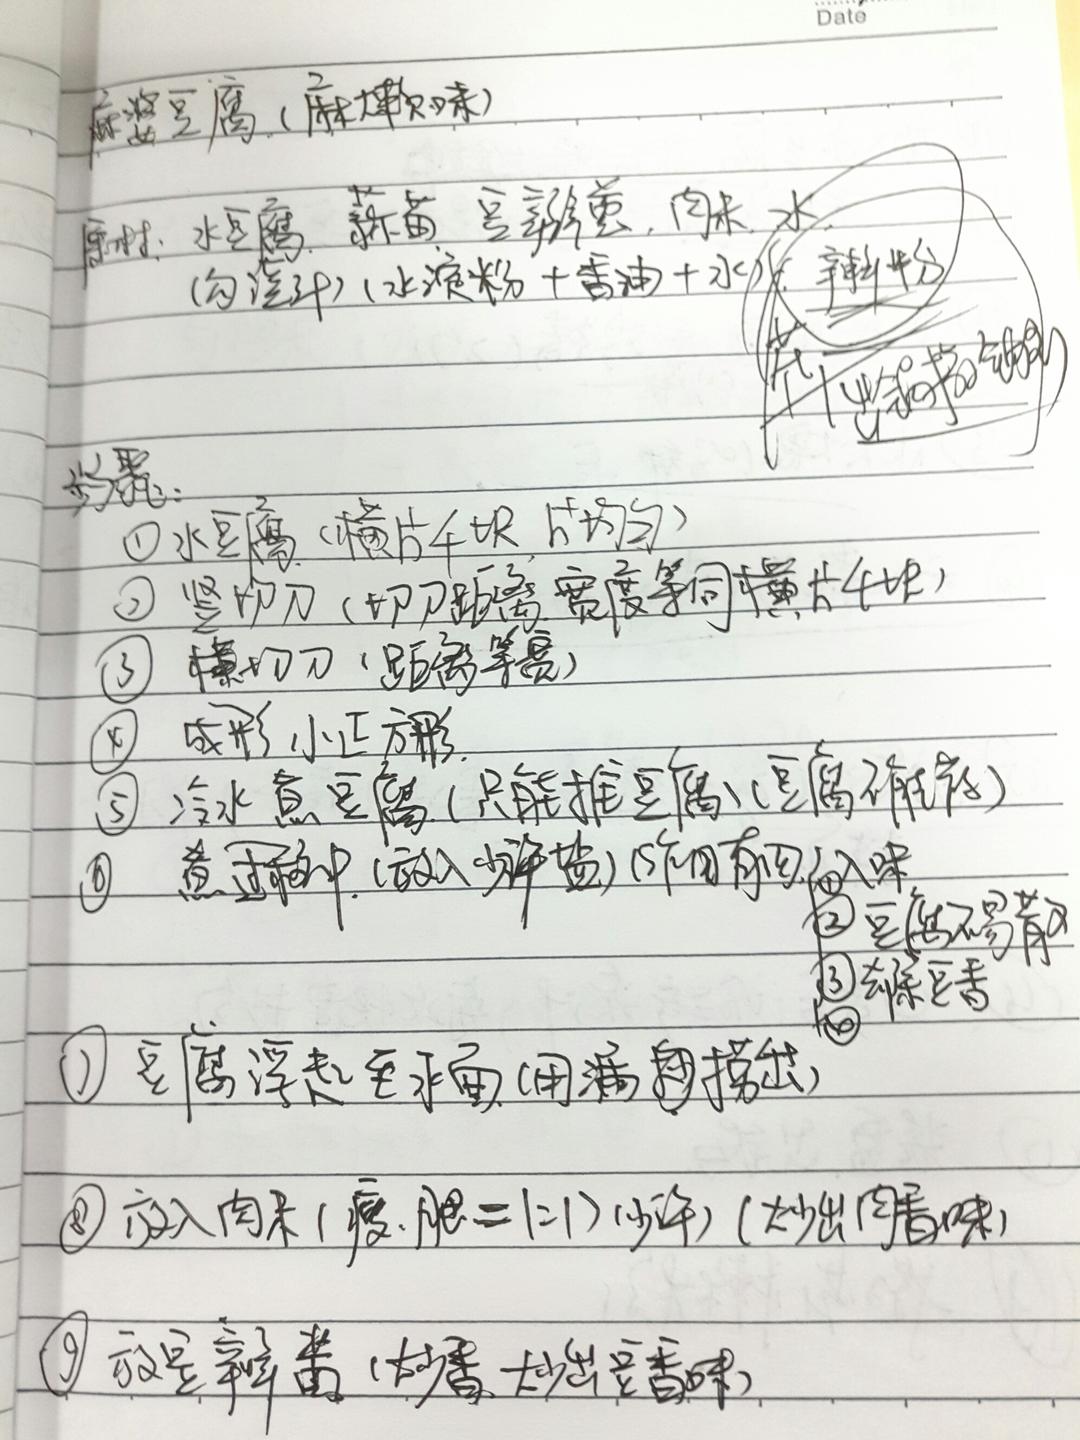 Date
麻婆豆腐(麻辣味)
原材: 水豆腐. 蒜苗. 豆瓣酱. 肉末. 水.
(勾芡汁)(水淀粉+香油+水)
步骤:
① 水豆腐(横片4块,片均匀)
② 竖切刀(切刀距离,宽度等同横片4块)
③ 横切刀(距离等宽)
④ 成形小正方形.
⑤ 冷水煮豆腐(只能推豆腐)(豆腐不能
⑥ 煮过程中(放入少许盐)作用有四 ①入味
②豆腐不易散
③去除豆香
④
⑦ 豆腐浮起至水面(用漏勺捞出)
⑧ 放入肉末(瘦.肥=1:1)(少许)(炒出肉香味)
⑨ 放豆瓣酱(炒香 炒出豆香味)